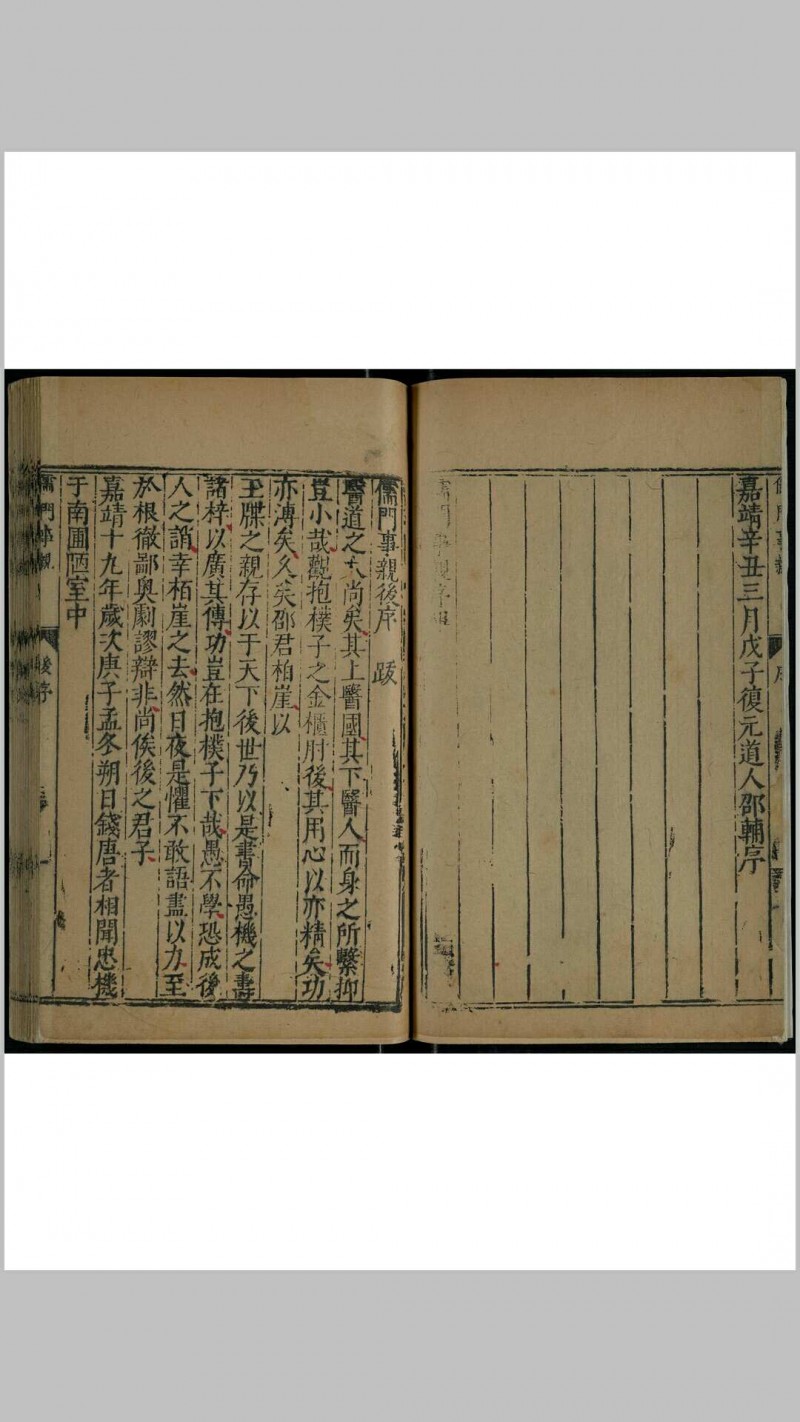 嘉靖辛丑三月戊子復元道人邵輔序
儒門事親後序　跋
醫道之大尚矣其上醫國其下醫人而身之所繫抑
豈小哉觀抱樸子之金櫃肘後其用心以亦精矣功
亦溥矣久矣邵君柏崖以
王牒之親存以于天下後世乃以是書命愚機之壽
諸梓以廣其傳功豈在抱樸子下哉愚不學恐成後
人之誚幸栢崖之去然日夜是懼不敢語盡以力至
於根徹鄙奥劇謬辯非尚俟後之君子
嘉靖十九年歲次庚子孟冬朔日錢唐者相聞忠機
于南圃陋室中
儒門事親
後序